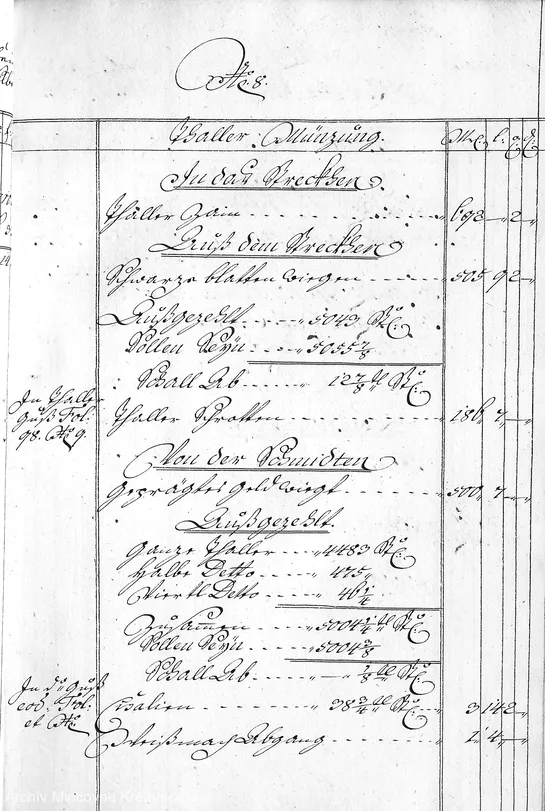 No. 8.
Thaller Müntzung. M. l. q. d.
In das Streckhen.
Thaller Zain - - - 693 - 2 -
Auß dem Streckhen
Schwarze blatten wiegen - - - 505 9 2 -
Außgezehlt - - - 5043 St:
Sollen Seyn - - - 5055 7/8
Schall Ab - - - 12 7/8 tl St:
In Thaller
Guß Fol:
98. No. 9.
Thaller Schrotten - - - 186 7 -
Von der Schmidten
Geprägtes Geld wiegt - - - 500 7 -
Außgezehlt.
Ganze Thaller - - - 4483 St:
Halbe Detto - - - 475
Viertl Detto - - - 46 1/4
Zusammen - - - 5004 1/4 tl St:
Sollen Seyn - - - 5004 3/8
Schall Ab - - - 1/8 tl St:
In d: Guß
eod: Fol:
et No.
Cisalien - - - 38 3/4 tl St: - - - 3 14 2
Weißmach Abgang - - - 1 4 -
Archiv Mincovne Kremnica